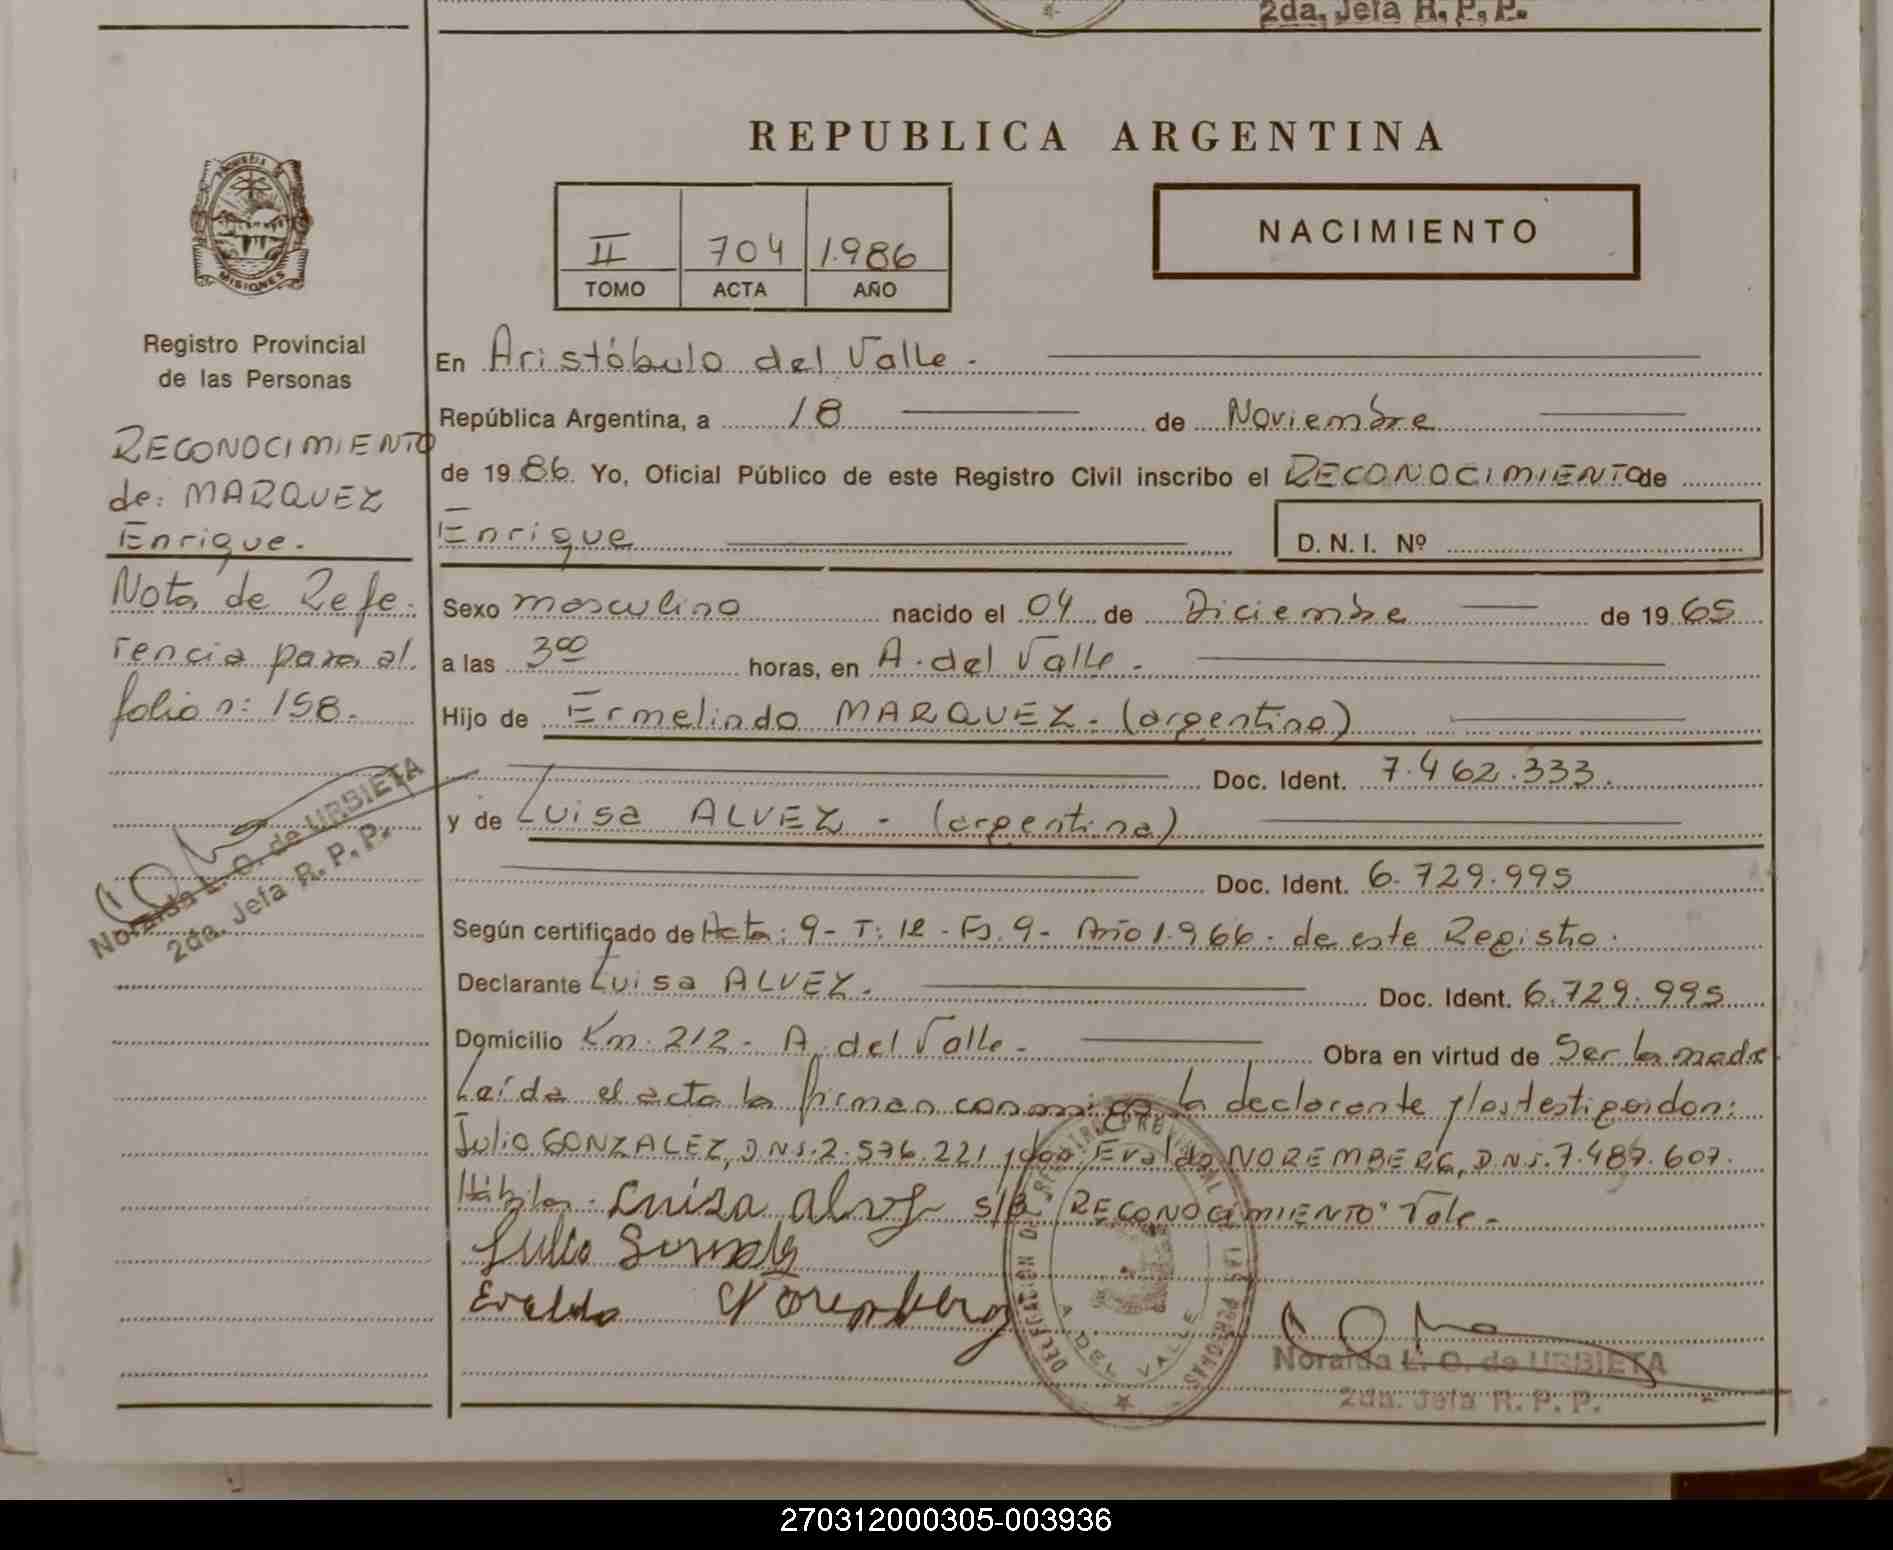 2da. Jefa R. P. P.
REPUBLICA ARGENTINA
MISIONES
II 704 1.986
TOMO ACTA AÑO
NACIMIENTO
Registro Provincial
de las Personas
RECONOCIMIENTO
de: MARQUEZ
Enrique.
Nota de Refe-
rencia para al
folio n: 158.
Noraida L. O. de URBIETA
2da. Jefa R. P. P.
En Aristóbulo del Valle.
República Argentina, a 18 de Noviembre
de 19 86. Yo, Oficial Público de este Registro Civil inscribo el RECONOCIMIENTO de
Enrique D. N. I. Nº
Sexo masculino nacido el 04 de Diciembre de 19 65
a las 3 00 horas, en A. del Valle.
Hijo de Ermelindo MARQUEZ. (argentino)
Doc. Ident. 7.462.333.
y de Luisa ALVEZ - (argentina)
Doc. Ident. 6.729.995
Según certificado de Acta: 9- T: Fs. 9- Año 1.966. de este Registro.
Declarante Luisa ALVEZ. Doc. Ident. 6.729.995
Domicilio Km. 212- A. del Valle. Obra en virtud de Ser la madre
Leída el acta la firman conmigo la declarante y los testigos don:
Julio GONZALEZ, D.N.I. 2.576.221 y don Evaldo NOREMBERG, D.N.I. 7.487.607.
Hábiles. Luiza alves s/R "RECONOCIMIENTO" Vale.
Julio Gonzalez
Evaldo Noremberg
DELEGACION DEL REGISTRO PROVINCIAL DE LAS PERSONAS
A. DEL VALLE
Noraida L. O. de URBIETA
2da. Jefa R. P. P.
270312000305-003936